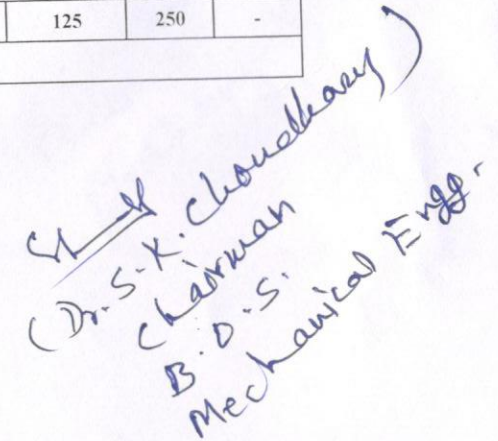 125 250 -
(Dr. S. K. Choudhary)
Chairman
B.O.S.
Mechanical Engg.